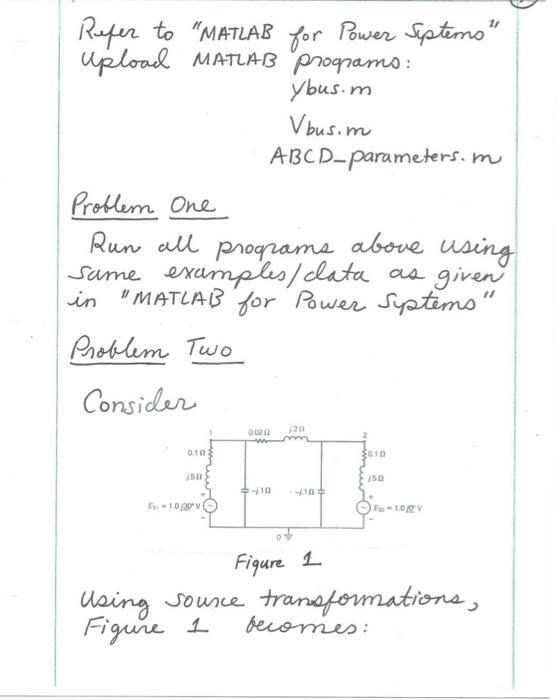 Refer to "MATLAB for Power Systems"
Upload MATLAB programs:
Ybus.m
Vbus.m
ABCD_parameters.m
Problem One
Run all programs above using
same examples/data as given
in "MATLAB for Power Systems"
Problem Two
Consider
1
0.02Ω
j.2Ω
2
0.1Ω
0.1Ω
j.5Ω
j.5Ω
-j.1Ω
-j.1Ω
+
+
= 1.0 /30° V
= 1.0 /0° V
-
-
0
Figure 1
Using source transformations,
Figure 1 becomes: